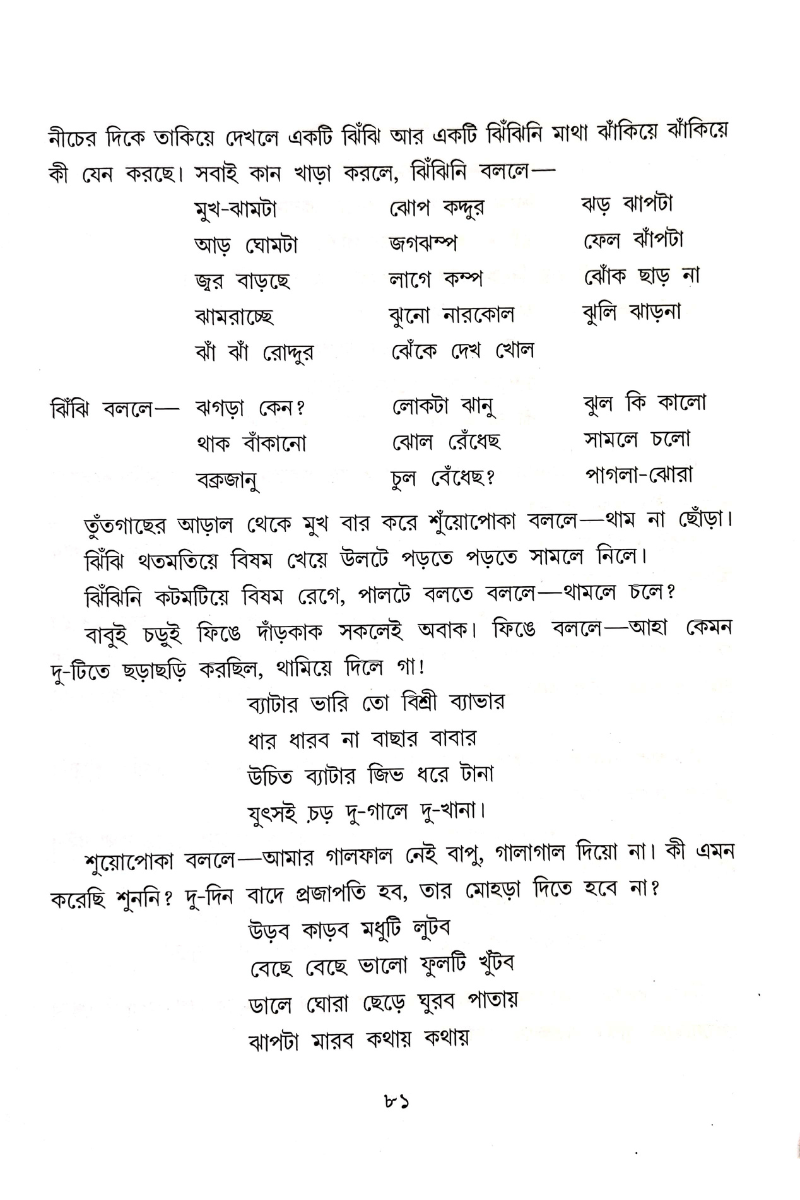 নীচের দিকে তাকিয়ে দেখলে একটি ঝিঁঝি আর একটি ঝিঁঝিনি মাথা ঝাঁকিয়ে ঝাঁকিয়ে
কী যেন করছে। সবাই কান খাড়া করলে, ঝিঁঝিনি বললে—
মুখ-ঝামটা ঝোপ কদ্দুর ঝড় ঝাপটা
আড় ঘোমটা জগঝম্প ফেল ঝাঁপটা
জ্বর বাড়ছে লাগে কম্প ঝোঁক ছাড় না
ঝামরাচ্ছে ঝুনো নারকোল ঝুলি ঝাড়না
ঝাঁ ঝাঁ রোদ্দুর ঝেঁকে দেখ খোল
ঝিঁঝি বললে— ঝগড়া কেন? লোকটা ঝানু ঝুল কি কালো
থাক বাঁকানো ঝোল রেঁধেছ সামলে চলো
বক্রজানু চুল বেঁধেছ? পাগলা-ঝোরা
তুঁতগাছের আড়াল থেকে মুখ বার করে শুঁয়োপোকা বললে—থাম না ছোঁড়া।
ঝিঁঝি থতমতিয়ে বিষম খেয়ে উলটে পড়তে পড়তে সামলে নিলে।
ঝিঁঝিনি কটমটিয়ে বিষম রেগে, পালটে বলতে বললে—থামলে চলে?
বাবুই চড়ুই ফিঙে দাঁড়কাক সকলেই অবাক। ফিঙে বললে—আহা কেমন
দু-টিতে ছড়াছড়ি করছিল, থামিয়ে দিলে গা!
ব্যাটার ভারি তো বিশ্রী ব্যাভার
ধার ধারব না বাছার বাবার
উচিত ব্যাটার জিভ ধরে টানা
যুৎসই চড় দু-গালে দু-খানা।
শুয়োপোকা বললে—আমার গালফাল নেই বাপু, গালাগাল দিয়ো না। কী এমন
করেছি শুননি? দু-দিন বাদে প্রজাপতি হব, তার মোহড়া দিতে হবে না?
উড়ব কাড়ব মধুটি লুটব
বেছে বেছে ভালো ফুলটি খুঁটব
ডালে ঘোরা ছেড়ে ঘুরব পাতায়
ঝাপটা মারব কথায় কথায়
৮১